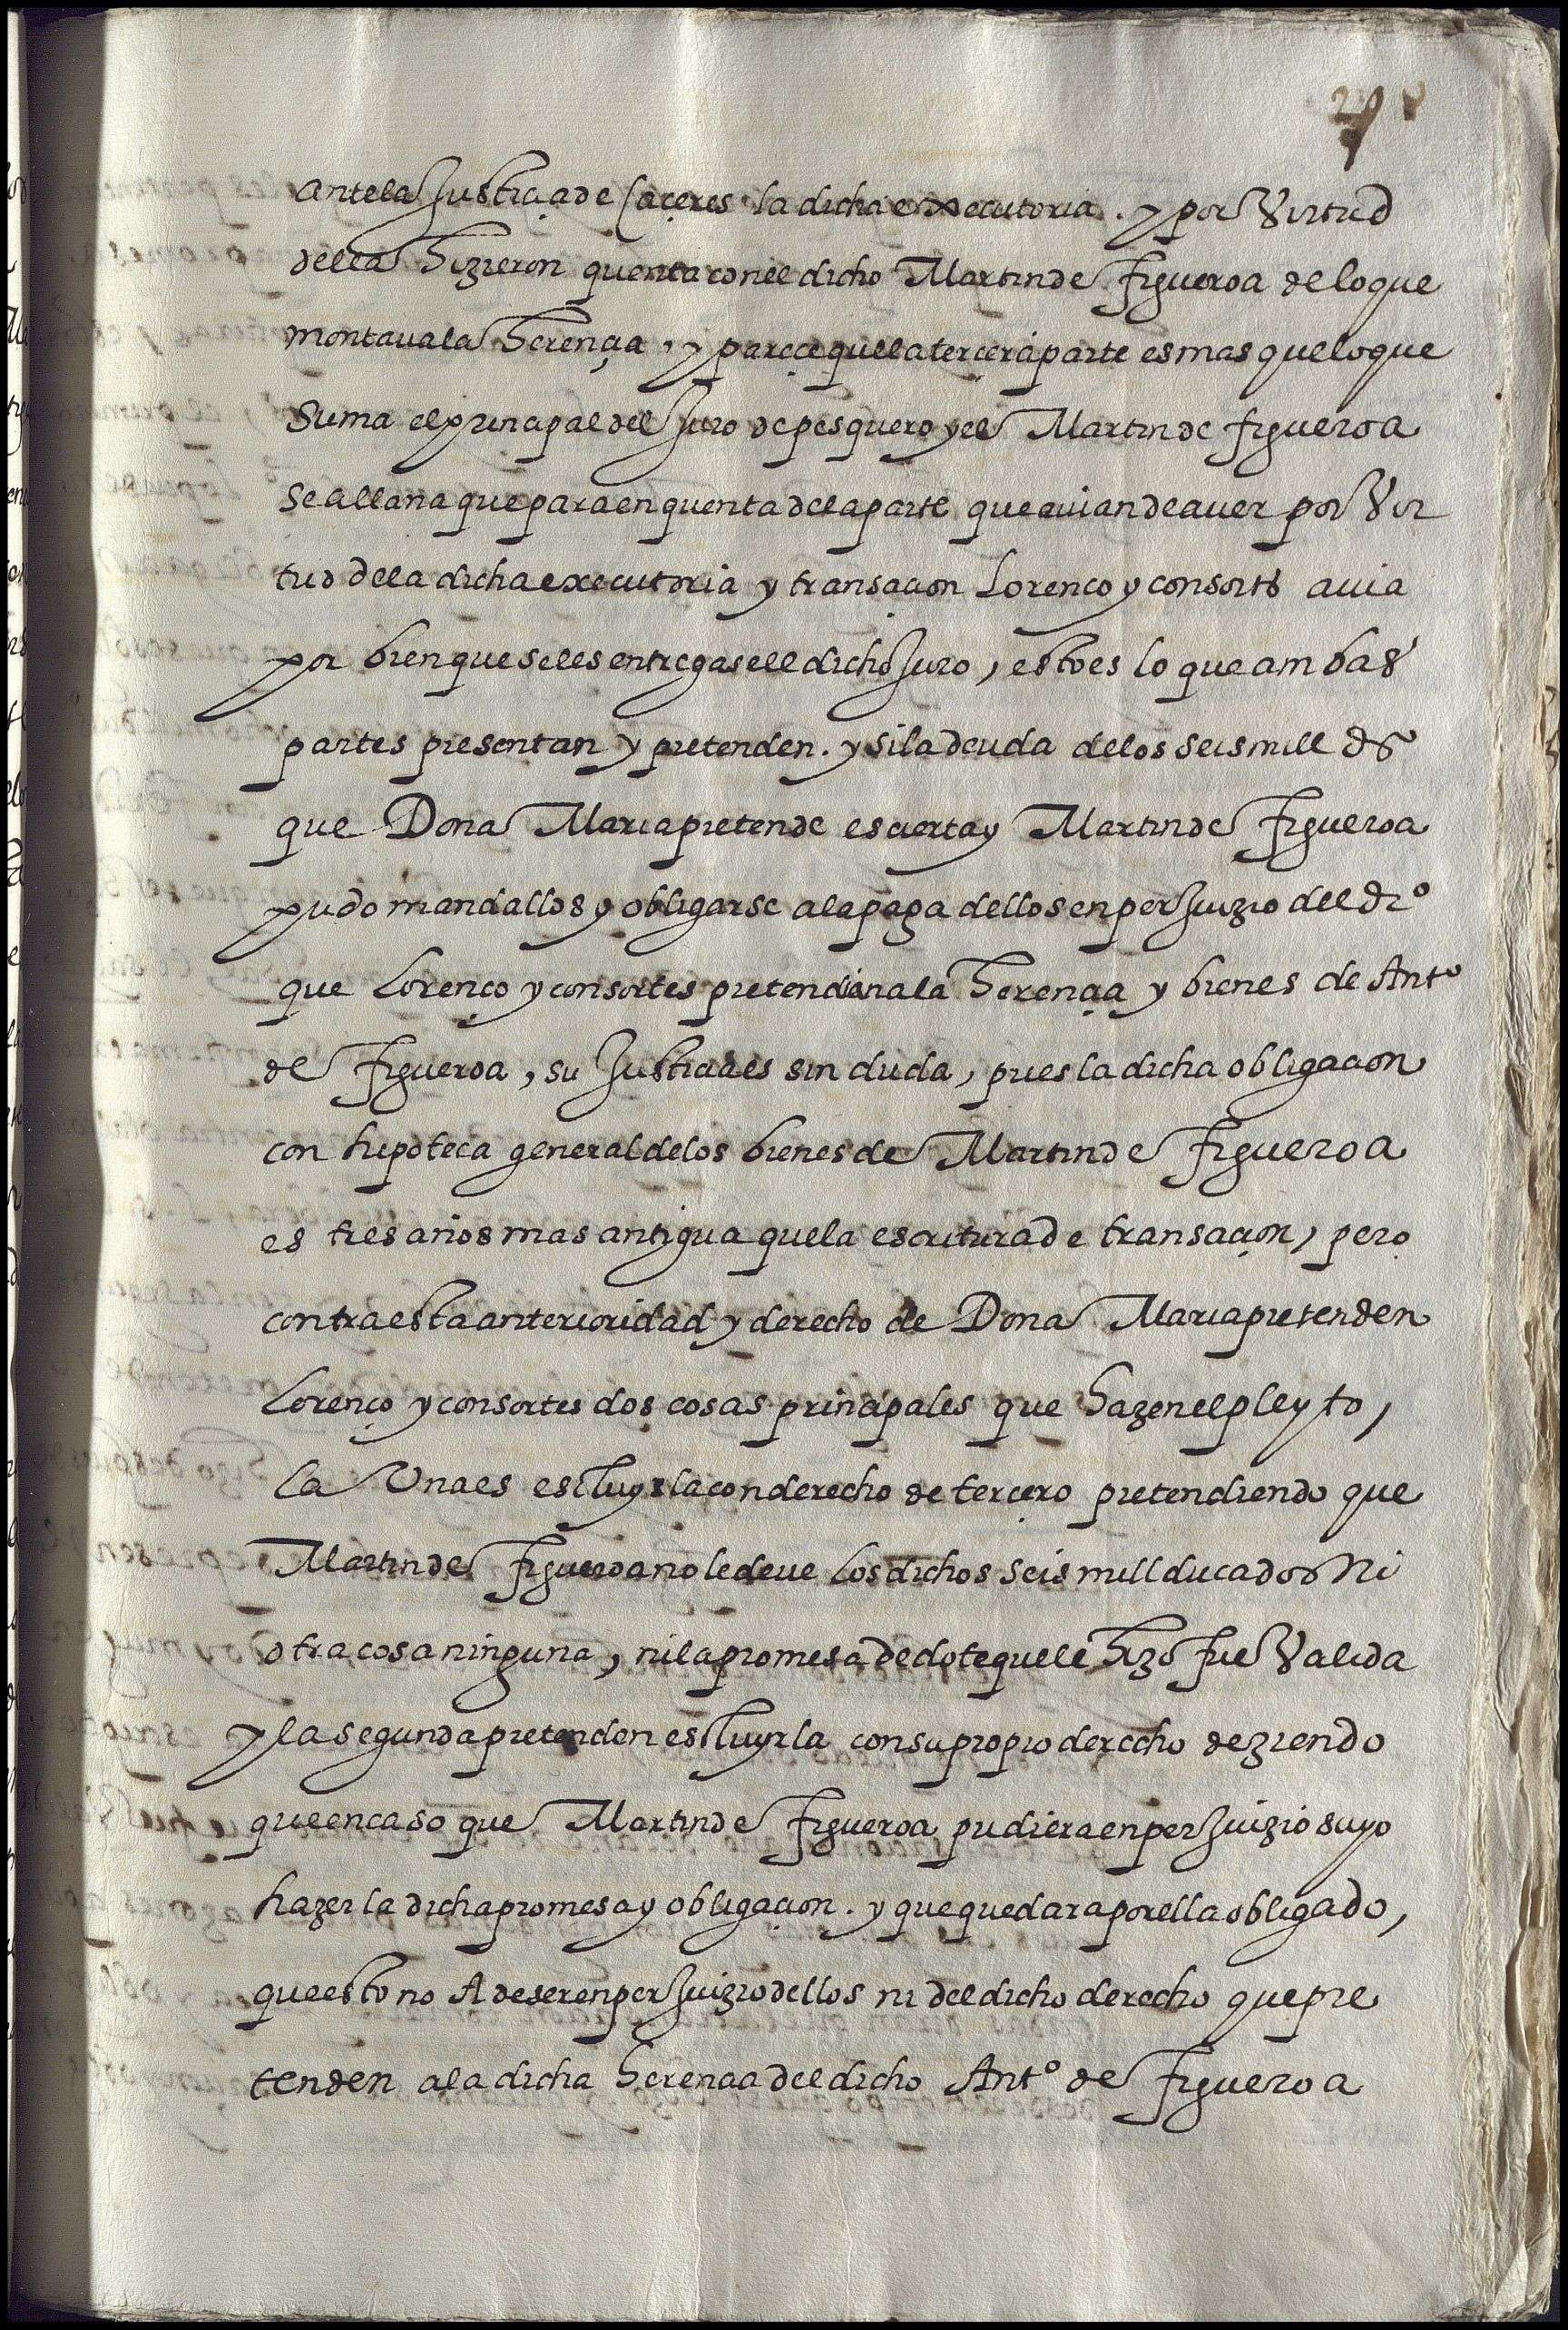 ante la Justiçia de Caçeres la dicha executoria . y por Virtud
della hizieron quenta con el dicho Martin de Figueroa de lo que
montaua la herençia , y pareçe que la terçera parte es mas que lo que
suma el prinçipal del Juro de pesquero y el Martin de figueroa
se allana que para en quenta de la parte que auian de auer por Vir
tud de la dicha executoria y transaçion Lorenço y consortes auia
por bien que se les entregase el dicho Juro , esto es lo que ambas
partes presentan y pretenden . y si la deuda de los seis mill ds
que Dona Maria pretende es cierta y Martin de Figueroa
pudo mandallos y obligarse a la paga dellos en perJuizio del dro
que Lorenço y consortes pretendian a la herençia y bienes de Anto
de Figueroa , su Justicia es sin duda , pues la dicha obligacion
con hipoteca general de los bienes de Martin de Figueroa
es tres años mas antigua que la escritura de transaçion , pero
contra esta anterioridad y derecho de Dona Maria pretenden
Lorenço y consortes dos cosas principales que hazen el pleyto ,
la Una es escluyrla con derecho de terçero pretendiendo que
Martin de Figueroa no le deue los dichos seis mill ducados Ni
otra cosa ninguna , ni la promesa de dote que le hizo fue Valida
y la segunda pretenden escluyrla con su propio derecho deziendo
que en caso que Martin de Figueroa pudiera en perJuizio suyo
hazer la dicha promesa y obligaçion . y que quedara por ella obligado ,
que esto no A de ser en perJuizio dellos ni del dicho derecho que pre
tenden a la dicha herencia del dicho Anto de Figueroa